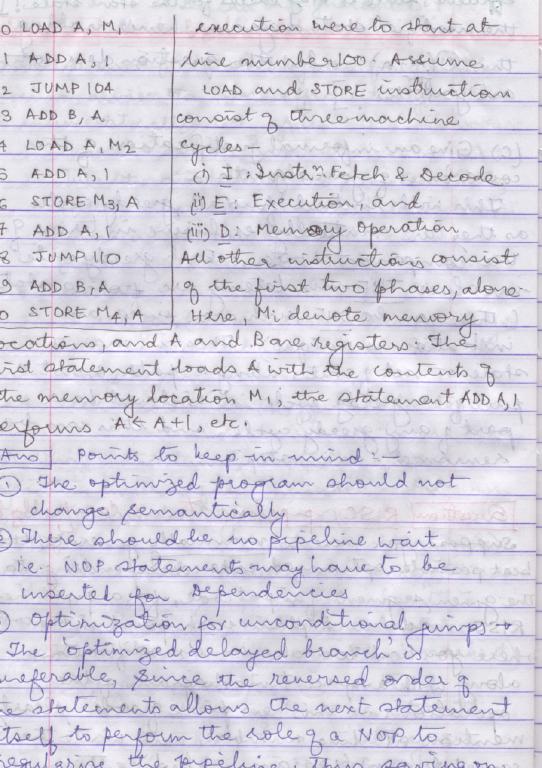 0 LOAD A, M1
1 ADD A, 1
2 JUMP 104
3 ADD B, A
4 LOAD A, M2
5 ADD A, 1
6 STORE M3, A
7 ADD A, 1
8 JUMP 110
9 ADD B, A
0 STORE M4, A
execution were to start at
line number 100. Assume
LOAD and STORE instruction
consist of three machine
cycles—
(i) I: Instrn Fetch & Decode
(ii) E: Execution, and
(iii) D: Memory operation
All other instructions consist
of the first two phases, alone.
Here, Mi denote memory
ocations, and A and B are registers. The
irst statement loads A with the contents of
the memory location M1; the statement ADD A, 1
erforms A ← A+1, etc.
Ans Points to keep in mind :—
① The optimized program should not
change semantically
② There should be no pipeline wait
i.e. NOP statements may have to be
inserted for Dependencies
) Optimization for unconditional jumps →
The 'optimized delayed branch' is
referable, since the reversed order of
he statements allows the next statement
itself to perform the role of a NOP to
regularise the pipeline, thus saving